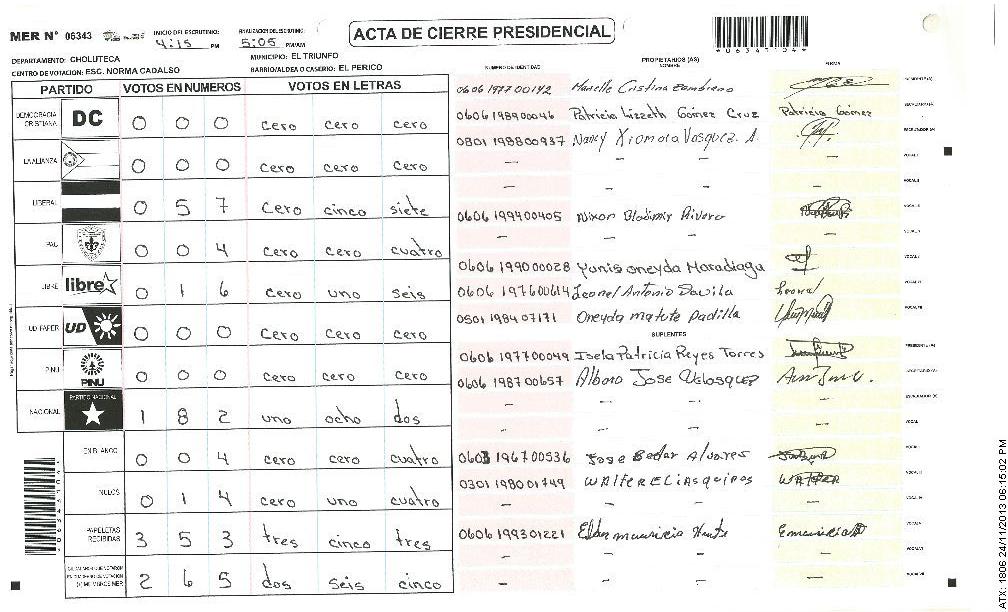 MER N° 06343
INICIO DEL ESCRUTINIO: 4:15 PM
FINALIZACION DEL ESCRUTINIO: 5:05 PM/AM
ACTA DE CIERRE PRESIDENCIAL
DEPARTAMENTO: CHOLUTECA
MUNICIPIO: EL TRIUNFO
CENTRO DE VOTACION: ESC. NORMA CADALSO
BARRIO/ALDEA O CASERIO: EL PERICO
PARTIDO VOTOS EN NUMEROS VOTOS EN LETRAS
DEMOCRACIA CRISTIANA DC 0 0 0 cero cero cero
LA ALIANZA 0 0 0 cero cero cero
LIBERAL 0 5 7 cero cinco siete
PAC 0 0 4 cero cero cuatro
LIBRE libre 0 1 6 cero uno seis
UD FAPER UD 0 0 0 cero cero cero
PINU PINU 0 0 0 cero cero cero
NACIONAL PARTIDO NACIONAL 1 8 2 uno ocho dos
EN BLANCO 0 0 4 cero cero cuatro
NULOS 0 1 4 cero uno cuatro
PAPELETAS RECIBIDAS 3 5 3 tres cinco tres
2 6 5 dos seis cinco
PROPIETARIOS (AS)
NUMERO DE IDENTIDAD NOMBRE FIRMA
0606 1977 00142 Cristina Zambrano
0606 1989 00046 Patricia Lizzeth Gómez Cruz Patricia Gómez
0801 1988 00937 Nancy Xiomara Vasquez. A.
0606 1994 00405 Nixon Bladimir Rivera
0606 1990 00028 Yunis oneyda Maradiaga
0606 1976 00614 Leonel Antonio Davila Leonel
0501 1984 07171 Oneyda matute Padilla
SUPLENTES
0606 1977 00049 Isela Patricia Reyes Torres
0606 1987 00657 Albaro Jose Velasquez
0603 1967 00536 Jose Bedar Alvares
0301 1980 01749 WALTER ELIAS quiros WALTER
0606 1993 01221 Elder mauricio
063431041
ATX: 1806 24/11/2013 06:15:02 PM